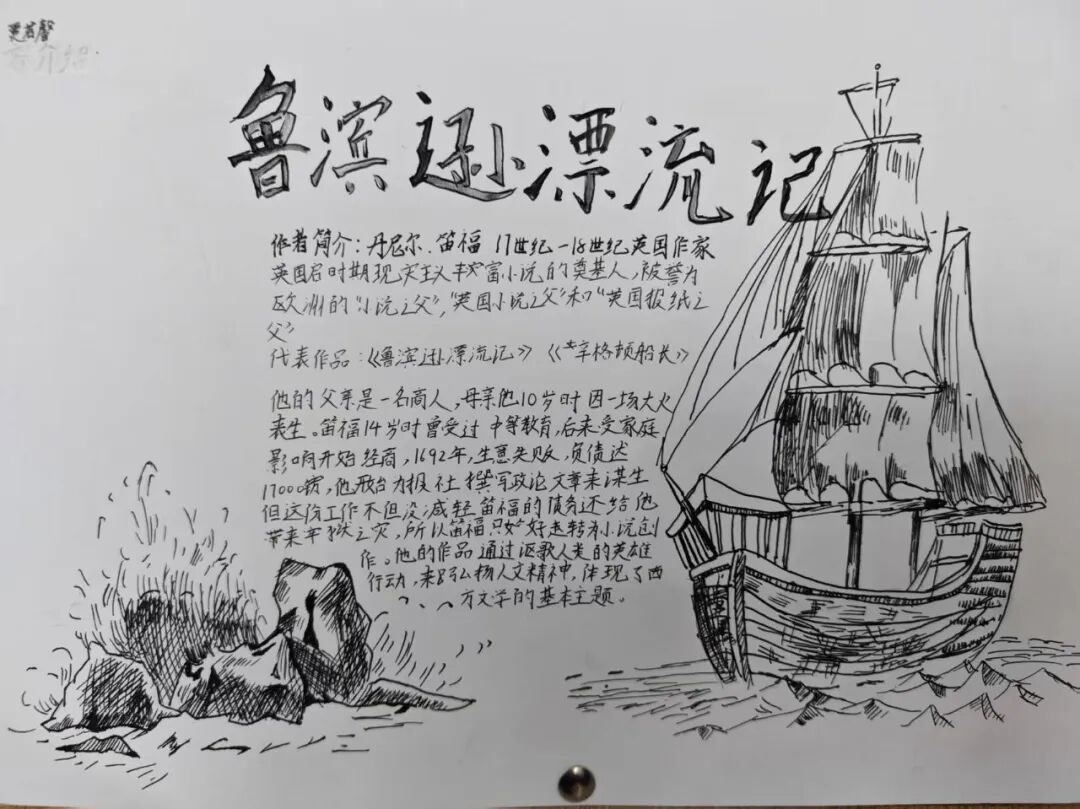 鲁滨逊漂流记
作者简介：丹尼尔.笛福 17世纪-18世纪英国作家
英国启时期现实主义丰富小说的奠基人，被誉为
欧洲的“小说之父”，“英国小说之父”和“英国报纸之
父”
代表作品：《鲁滨逊漂流记》《辛格顿船长》
他的父亲是一名商人，母亲他10岁时因一场大火
丧生。笛福14岁时曾受过中等教育，后来受家庭
影响开始经商，1692年，生意失败，负债达
17000镑，他开始为报社撰写政论文章来谋生
但这份工作不但没减轻笛福的债务还给他
带来牢狱之灾，所以笛福只好走转小说创
作。他的作品通过讴歌人类的英雄
行动，来弘扬人文精神，体现了西
方文学的基本主题。